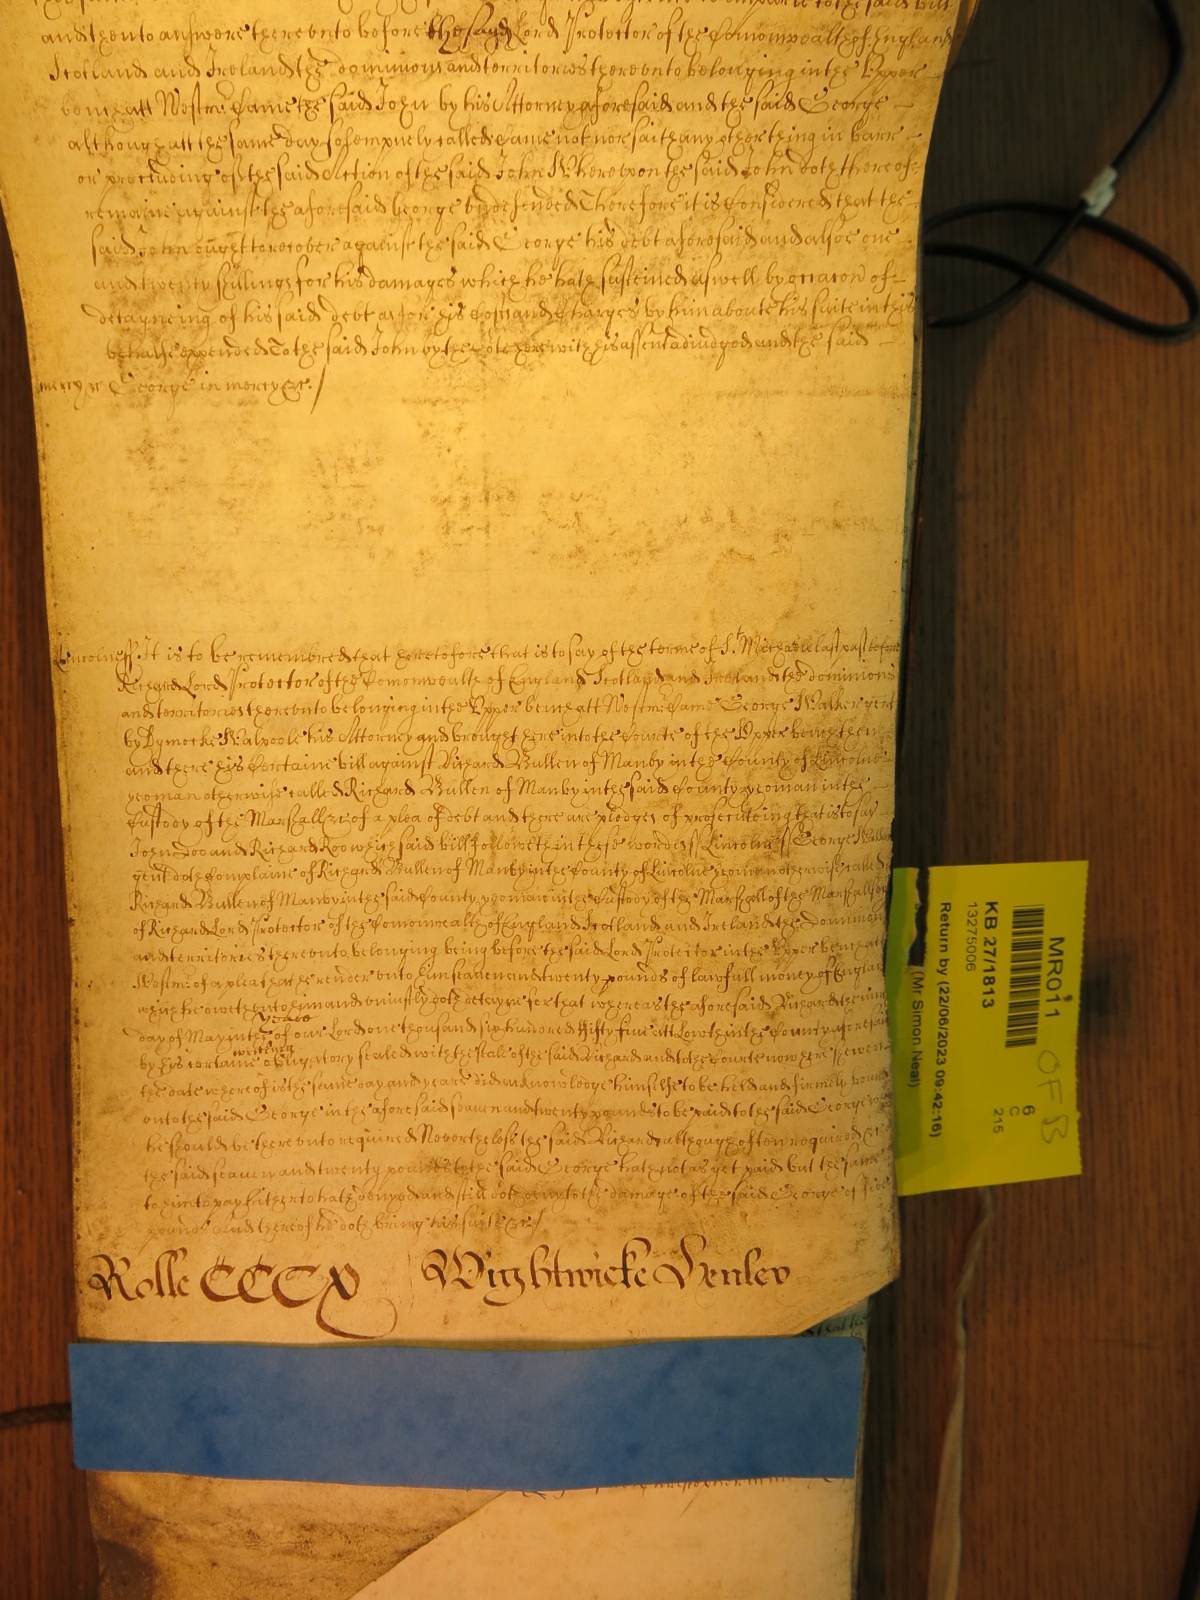 and then to answere thereunto before the said Lord Protector of the Comonwealth of England
Scotland and Ireland & the dominions and territories thereunto belonging in the Upper
bench att Westmr Came the said John by his Attorney aforesaid and the said George
although att the same day solempnely called Came not nor saith any other thing in barr
or precluding of the said Action of the said John Whereupon the said John doth thereof
remaine against the aforesaid George undefended Therefore it is Considered that the
said John ought to recover against the said George his debt aforesaid and alsoe one
and twenty shillings for his damages which he hath susteined aswell by occacon of
deteyneing of his said debt as for his Costs and Charges by him aboute his suite in this
behalfe expended To the said John by the Cote here with his assent adiudged and the said
mercy &c George in mercy &c.
Lincolne ss It is to be remembred that heretofore that is to say of the terme of St. Michaell last past before
Richard Lord Protector of the Comonwealth of England Scotland and Ireland & the dominions
and territories thereunto belonging in the Upper bench att Westmr Came George Walker gent
by Dymocke Walpoole his Attorney and brought here into the Courte of the Upper bench then
and there his Certaine bill against Richard Bullen of Manby in the County of Lincolne
yeoman otherwise called Richard Bullen of Manby in the said County yeoman in the
Custody of the Marshall &c of a plea of debt and there are pledges of prosecuteing that is to say
John Doo and Richard Roo which said bill followeth in these wordes ss Lincolne ss George Walker
gent doth Complaine of Richard Bullen of Manby in the County of Lincolne yeoman otherwise called
Richard Bullen of Manby in the said County yeoman in the Custody of the Marshall of the Marshallsey
of Richard Lord Protector of the Comonwealth of England Scotland and Ireland & the Dominions
and territories thereunto belonging being before the said Lord Protector in the Upper bench att
Westmr of a plea that he render unto him seaven and twenty pounds of lawfull money of England
which he oweth unto him and uniustly doth deteyne for that whereas the aforesaid Richard the
day of May in the yeare of our Lord one thousand six hundred fifty five att Lowth in the County aforesaid
by his certaine writeing obligatory sealed with the seale of the said Richard and to the Courte now here shewen
the date whereof is the same day and yeare did acknowledge himselfe to be held and firmely bound
unto the said George in the aforesaid seaven and twenty pounds to be paid to the said George when
he should be thereunto required Neverthelesse the said Richard although often required &c
the said seaven and twenty pounds to the said George hath not as yet paid but the same
to him to pay hitherto hath denyed and still doth deny to the damage of the said George of five
pounds And thereof he doth bring his suite &c
Rolle CCCX Wightwicke Henley
MR011
OFB
6
C
215
KB 27/1813
13275006
Return by (22/06/2023 09:42:16)
(Mr Simon Neal)